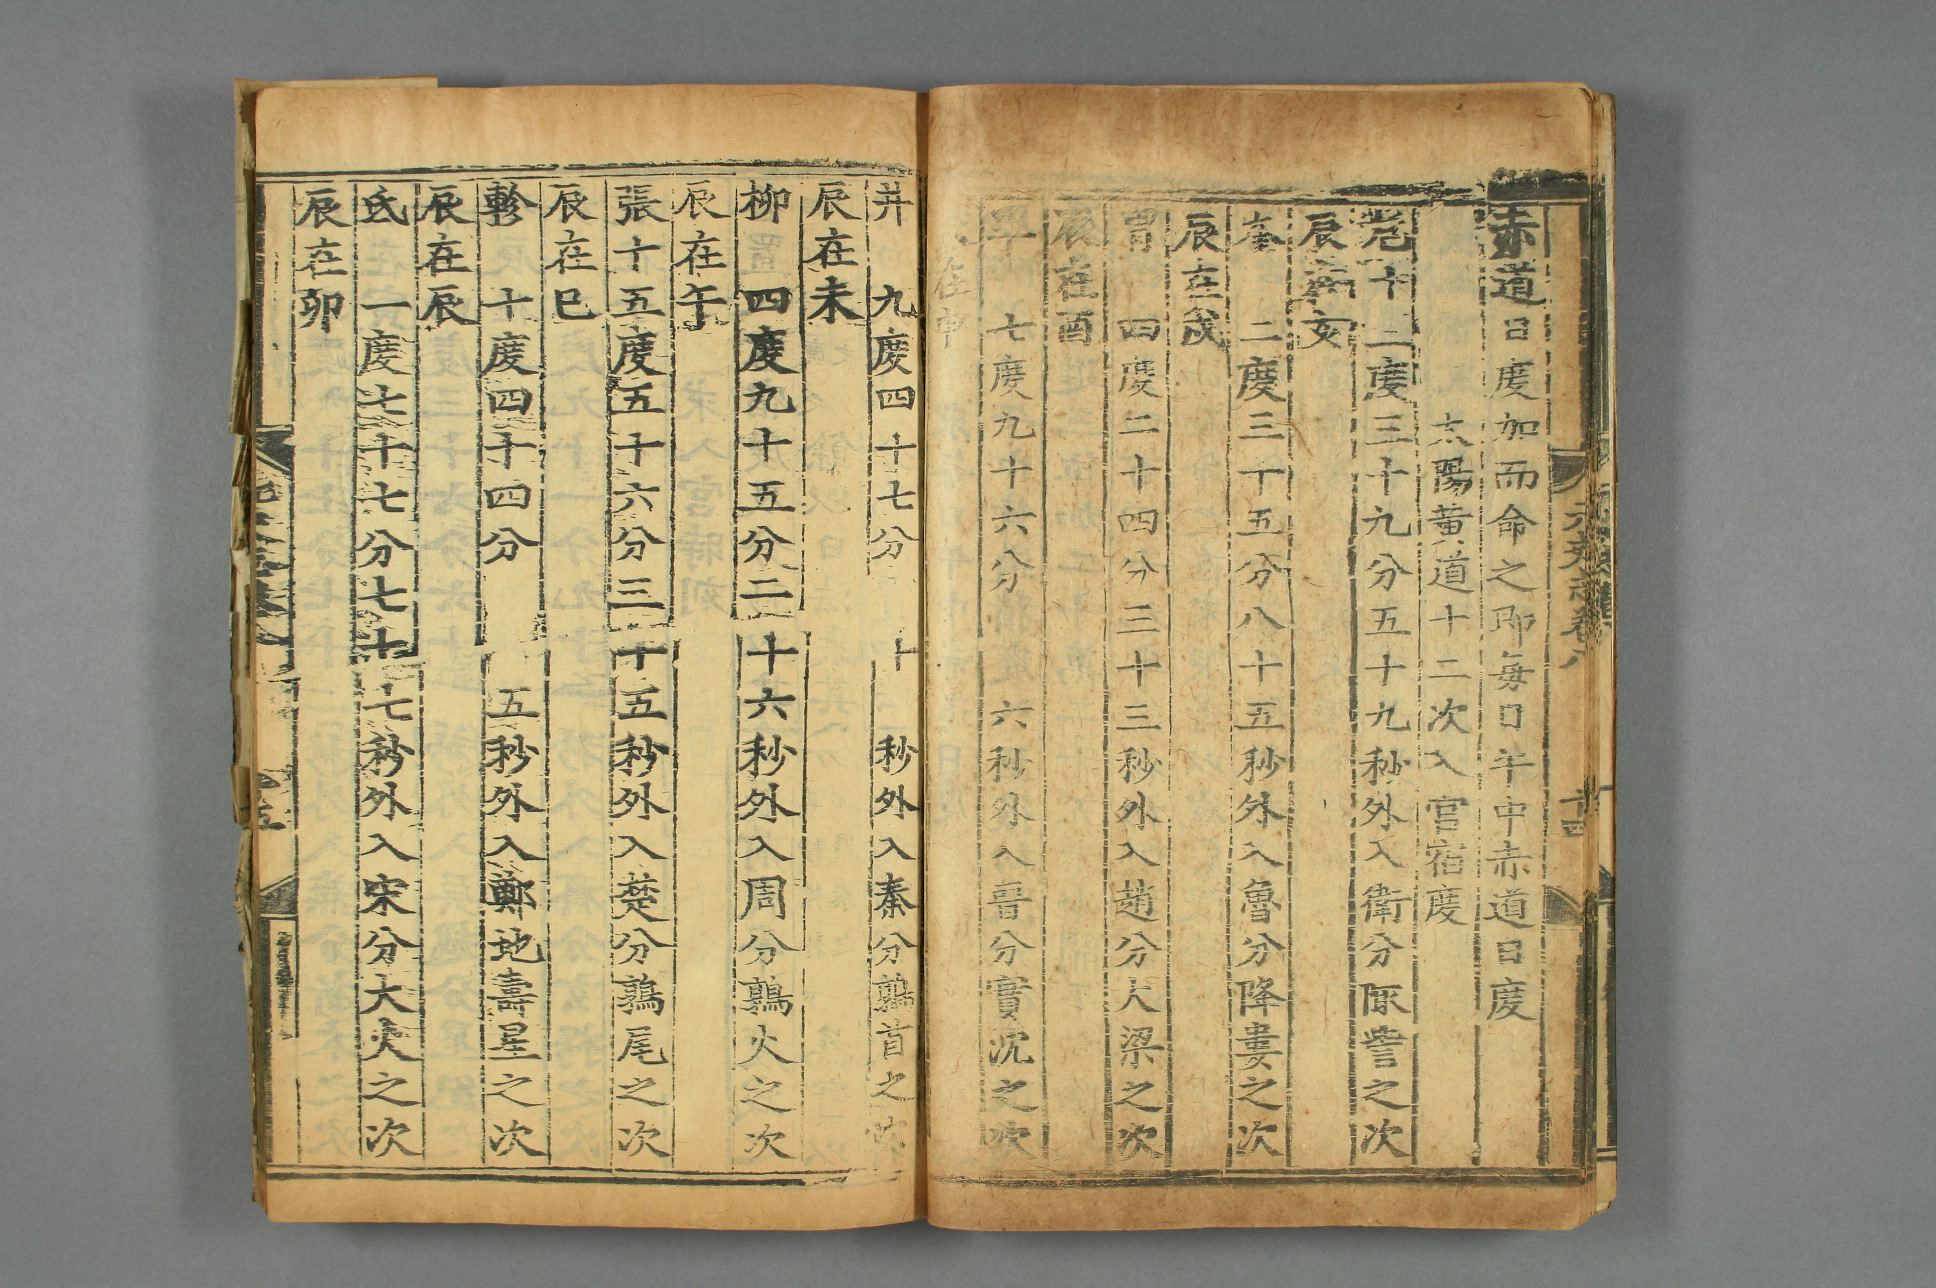 赤道日度加而命之即每日半中赤道日度
太陽黄道十二次入宮宿度
危十二度三十九分五十九秒外入衛分陬訾之次
辰在亥
奎 二度三十五分八十五秒外入魯分降婁之次
辰在戌
胃 四度二十四分三十三秒外入趙分大梁之次
辰在酉
畢 七度九十六分 六秒外入晋分實沈之次
在申
井 九度四十七分 十 秒外入秦分鶉首之次
辰在未
柳 四度九十五分二十六秒外入周分鶉火之次
辰在午
張十五度五十六分三十五秒外入楚分鶉尾之次
辰在巳
軫 十度四十四分 五秒外入鄭地壽星之次
辰在辰
氐 一度七十七分七十七秒外入宋分大火之次
辰在卯